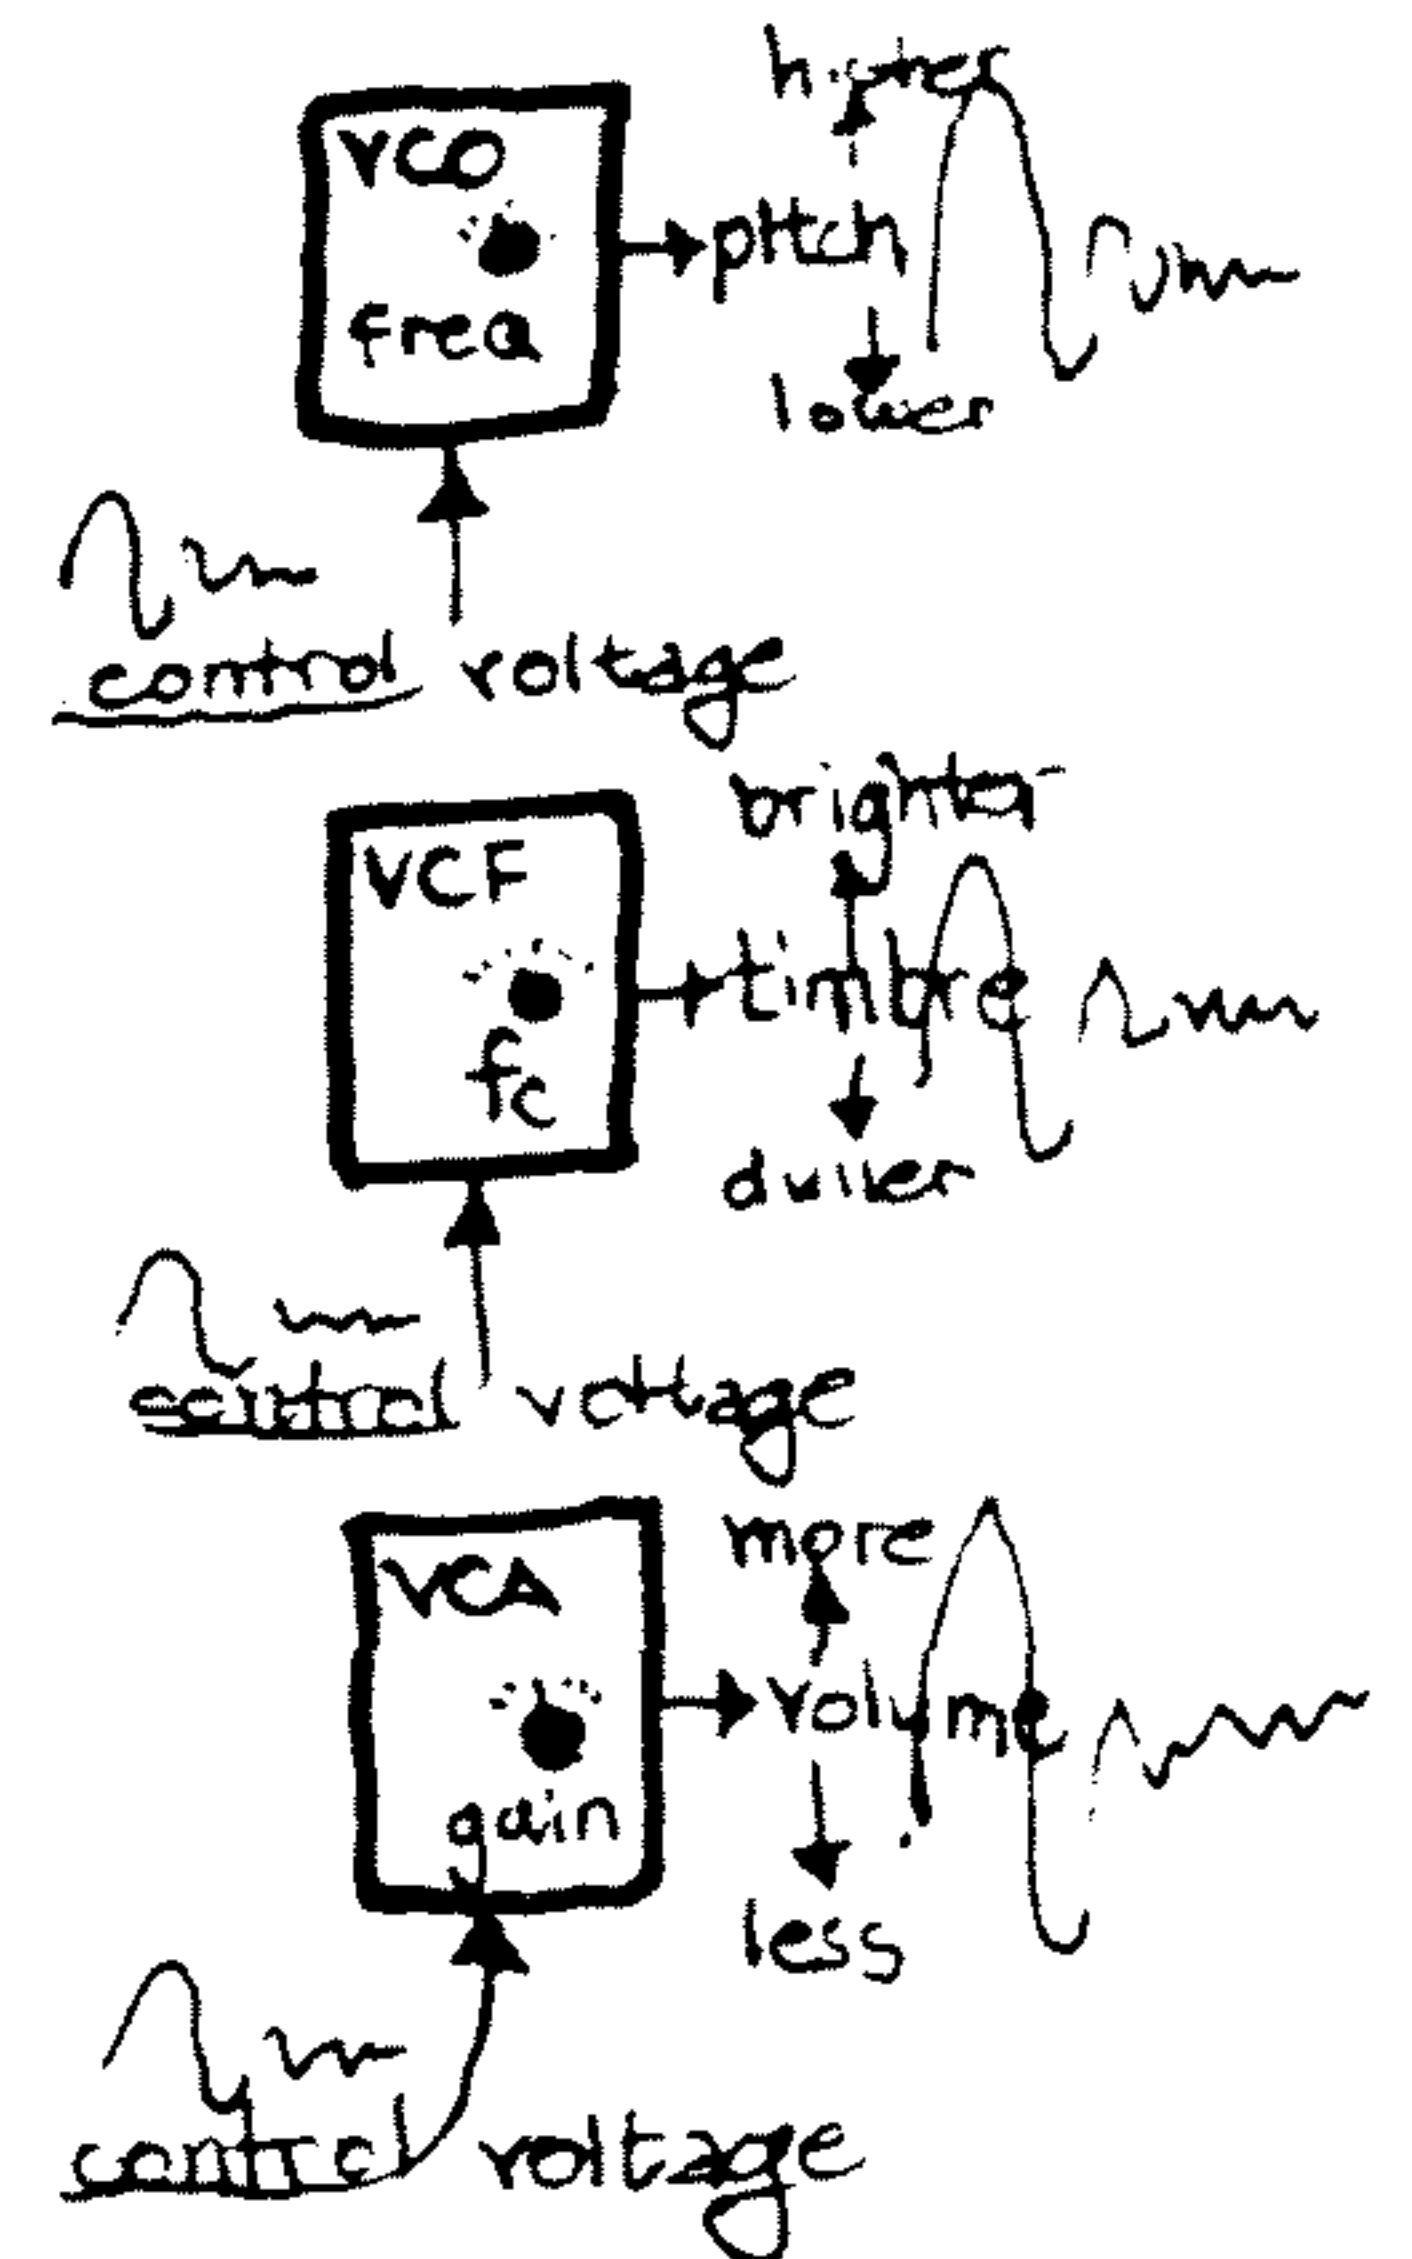 higher
VCO
pitch
freq
lower
control voltage
brighter
VCF
timbre
fc
duller
control voltage
more
VCA
volume
gain
less
control voltage